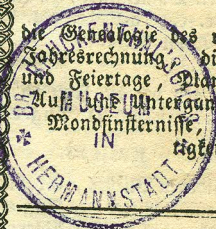 die Genealogie des
Jahresrechnung, di
und Feiertage,
Auf- und Untergan
Mondfinsternisse,
tigke
MUSEUM
IN
HERMANNSTADT